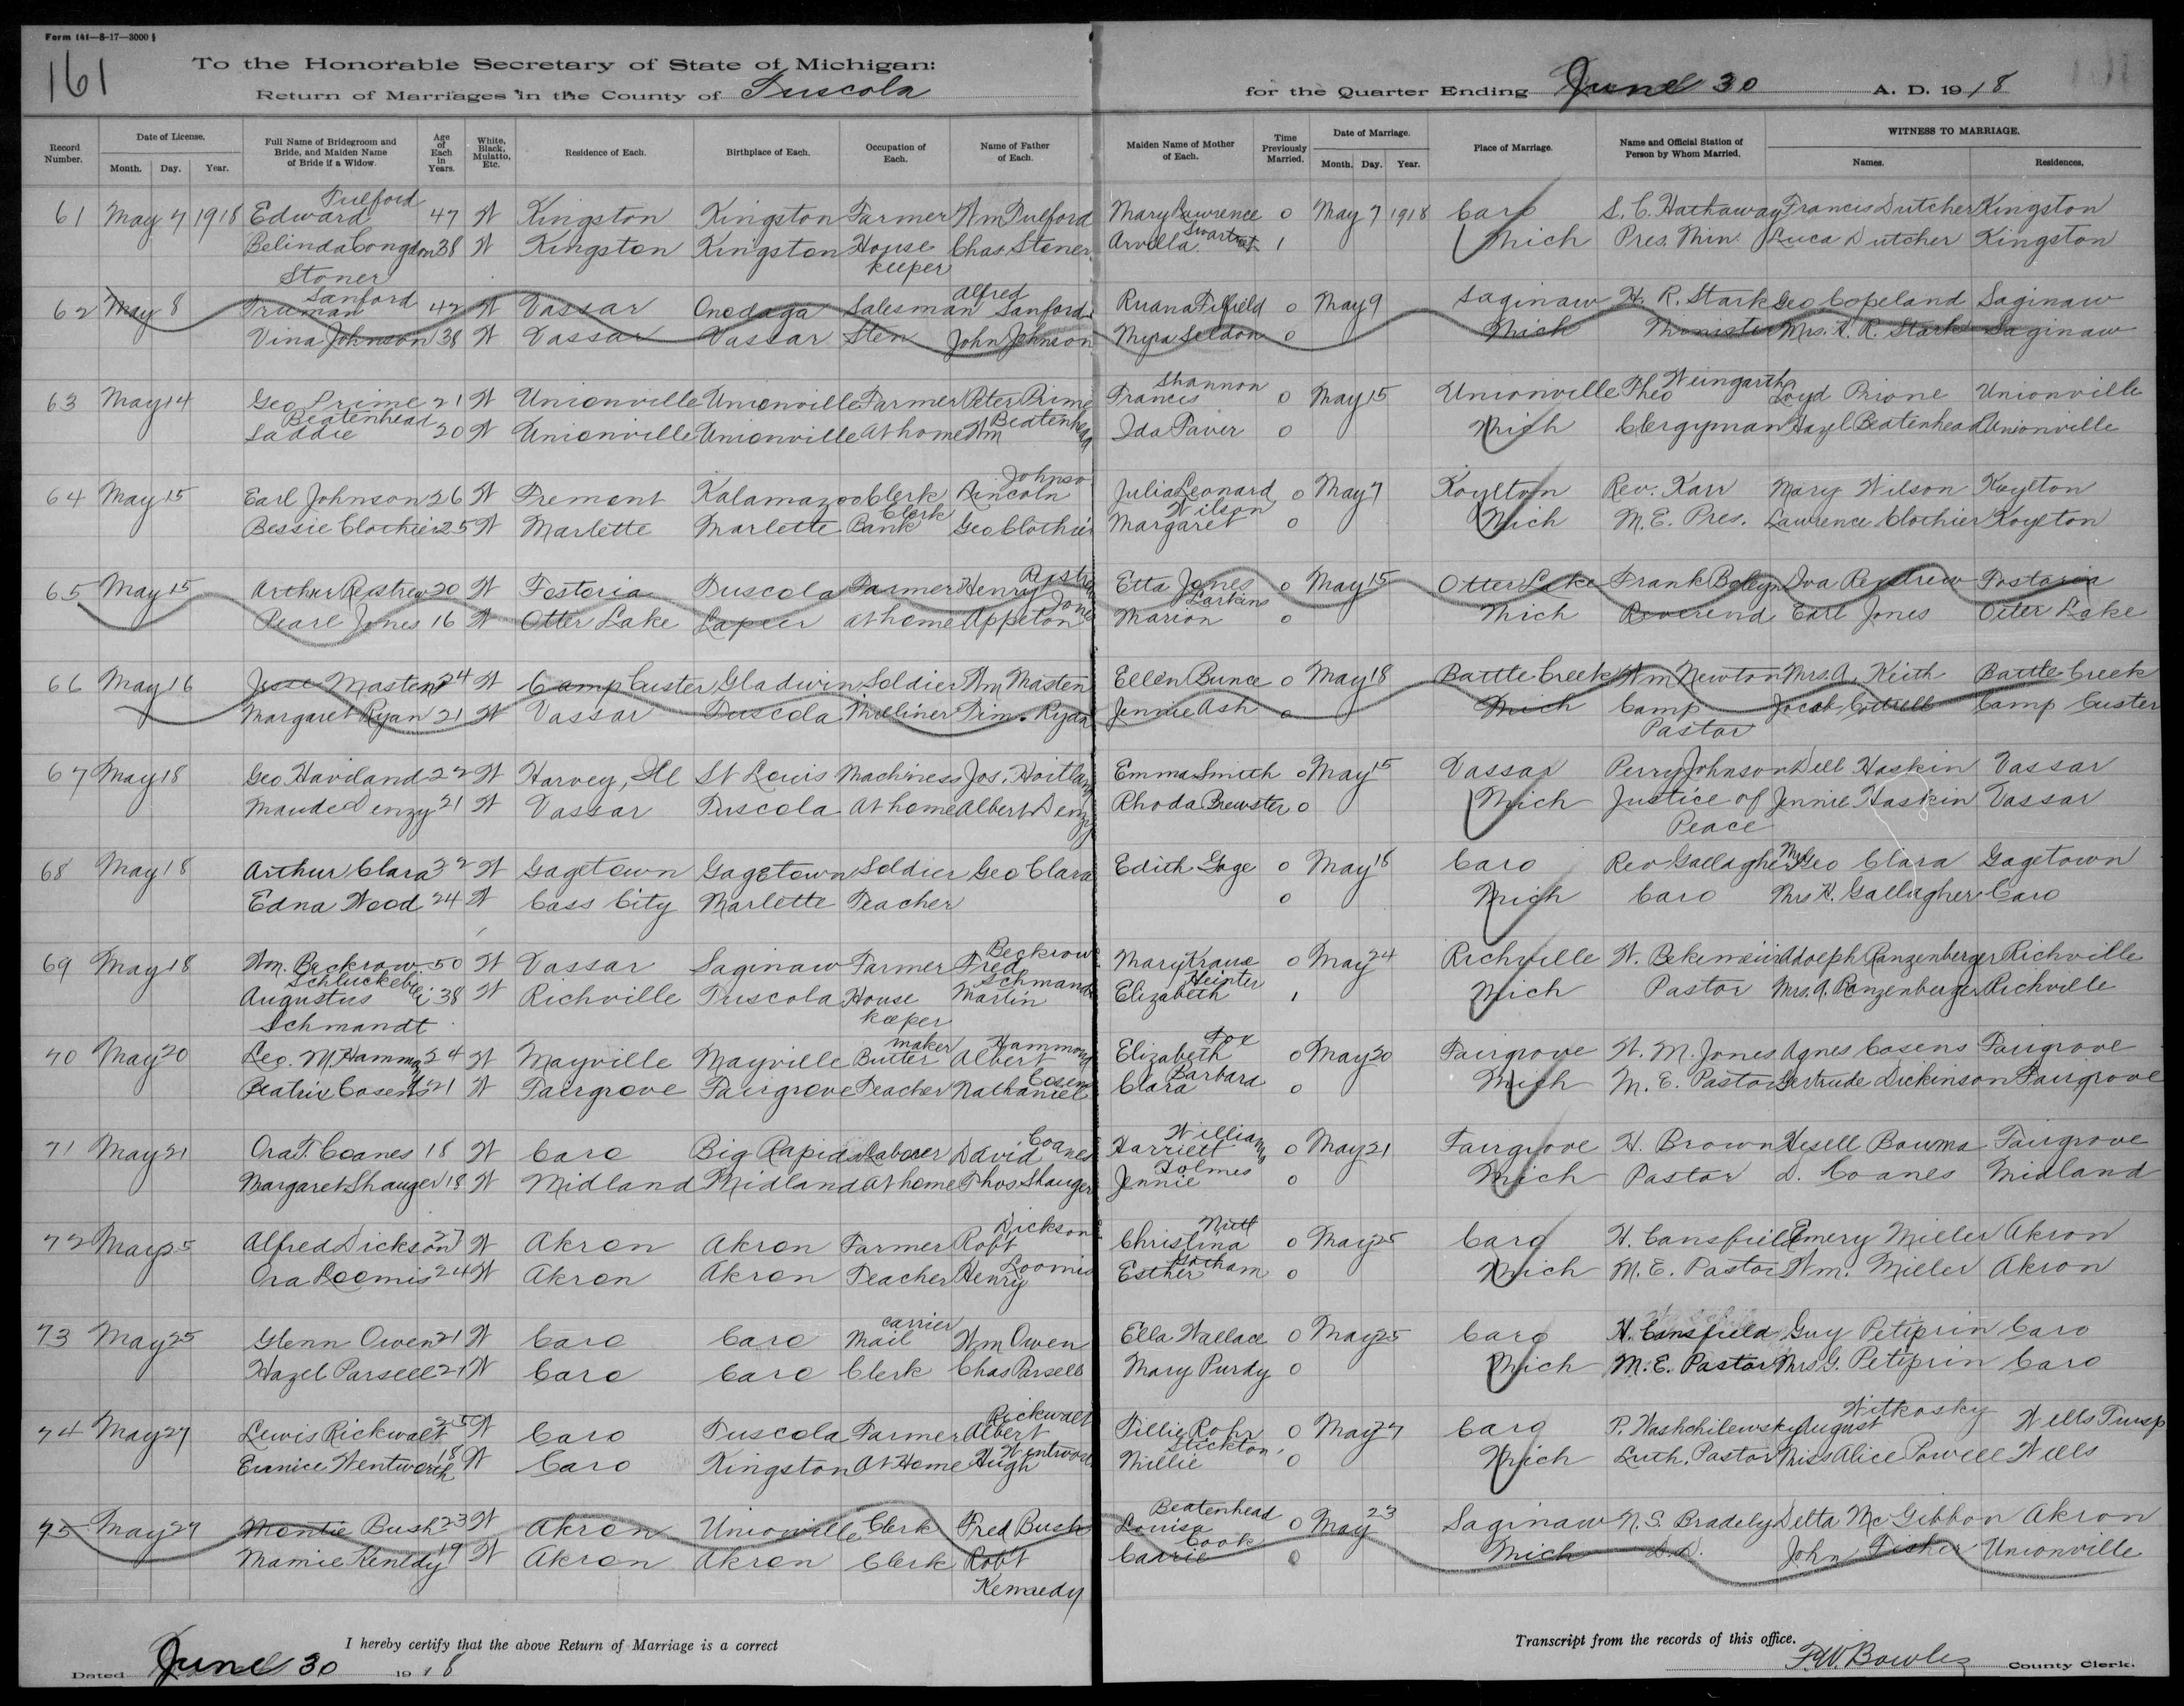 Form 141—8-17—3000
161
To the Honorable Secretary of State of Michigan:
Return of Marriages in the County of Tuscola for the Quarter Ending June 30 A. D. 1918
Record Number. Date of License. Month. Day. Year. Full Name of Bridegroom and Bride, and Maiden Name of Bride if a Widow. Age of Each in Years. White, Black, Mulatto, Etc. Residence of Each. Birthplace of Each. Occupation of Each. Name of Father of Each. Maiden Name of Mother of Each. Time Previously Married. Date of Marriage. Month. Day. Year. Place of Marriage. Name and Official Station of Person by Whom Married. WITNESS TO MARRIAGE. Names. Residences.
61 May 7 1918 Edward Fulford 47 W Kingston Kingston Farmer Wm Fulford Mary Lawrence 0 May 7 1918 Caro S. C. Hathaway Francis Dutcher Kingston
Belinda Congdon 38 W Kingston Kingston House keeper Chas. Stoner Arvilla Swartout 1 Mich Pres. Min. Luca Dutcher Kingston
Stoner
62 May 8 Truman Sanford 42 W Vassar Onodaga Salesman Alfred Sanford Ruana Fifield 0 May 9 Saginaw H. R. Stark Geo Copeland Saginaw
Vina Johnson 38 W Vassar Vassar Sten John Johnson Myra Seldon 0 Mich Minister Mrs. H. R. Stark Saginaw
63 May 14 Geo Prime 21 W Unionville Unionville Farmer Peter Prime Francis Shannon 0 May 15 Unionville Theo Weingarth Loyd Prione Unionville
Saddie Beatenhead 20 W Unionville Unionville At home Wm Beatenhead Ida Paver 0 Mich Clergyman Hazel Beatenhead Unionville
64 May 15 Earl Johnson 26 W Fremont Kalamazoo Clerk Lincoln Johnso Julia Leonard 0 May 7 Koylton Rev. Karr Mary Wilson Koylton
Bessie Clothier 25 W Marlette Marlette Bank Clerk Geo Clothier Margaret Wilson 0 Mich M. E. Pres. Lawrence Clothier Koylton
65 May 15 Arthur Rastrew 20 W Fostoria Tuscola Farmer Henry Etta Jones 0 May 15 Otter Lake Frank Iva Fostoria
Pearl Jones 16 W Otter Lake Lapeer at home Appleton Jones Marion Larkins 0 Mich Reverend Earl Jones Otter Lake
66 May 16 Jesse Masten 24 W Camp Custer Gladwin Soldier Wm Masten Ellen Bunce 0 May 18 Battle Creek Wm Newton Mrs. A. Keith Battle Creek
Margaret Ryan 21 W Vassar Tuscola Milliner Tim. Ryan Jennie Ash 0 Mich Camp Pastor Jacob Cottrell Camp Custer
67 May 18 Geo Haviland 22 W Harvey, Ill St Louis Machiness Jos. Emma Smith 0 May 15 Vassar Perry Johnson Dell Haskin Vassar
Maude Denzy 21 W Vassar Tuscola At home Albert Denzy Rhoda Brewster 0 Mich Justice of Peace Jennie Haskin Vassar
68 May 18 Arthur Clara 22 W Gagetown Gagetown Soldier Geo Clara Edith Gage 0 May 18 Caro Rev Gallagher Mrs Geo Clara Gagetown
Edna Wood 24 W Cass City Marlette Teacher 0 Mich Caro Mrs R. Gallagher Caro
69 May 18 Wm. Beckrow 50 W Vassar Saginaw Farmer Fred Beckrow Mary Krause 0 May 24 Richville W. Bekemeir Adolph Ranzenberger Richville
Augustus Schluckebier 38 W Richville Tuscola House keeper Martin Schmandt Elizabeth 1 Mich Pastor Mrs. A. Ranzenberger Richville
Schmandt
70 May 20 Leo. M. Hammond 24 W Mayville Mayville Butter maker Albert Hammond Elizabeth Fox 0 May 20 Fairgrove W. M. Jones Agnes Cosens Fairgrove
Beatrix Cosens 21 W Fairgrove Fairgrove Teacher Nathaniel Cosens Clara Barbara 0 Mich M. E. Pastor Gertrude Dickinson Fairgrove
71 May 21 Ora T. Coanes 18 W Caro Big Rapids Laborer David Coanes Harriett Williams 0 May 21 Fairgrove H. Brown Hesell Bowma Fairgrove
Margaret Shauger 18 W Midland Midland At home Thos Shauger Jennie Holmes 0 Mich Pastor D. Coanes Midland
72 May 25 Alfred Dickson 27 W Akron Akron Farmer Robt Dickson Christina 0 May 25 Caro H. Cansfield Emery Miller Akron
Ora Loomis 24 W Akron Akron Teacher Henry Loomis Esther Gotham 0 Mich M. E. Pastor Wm. Miller Akron
73 May 25 Glenn Owen 21 W Caro Caro Mail carrier Wm Owen Ella Wallace 0 May 25 Caro H. Cansfield Guy Petiprin Caro
Hazel Parsell 21 W Caro Caro Clerk Chas Parsell Mary Purdy 0 Mich M. E. Pastor Mrs. G. Petiprin Caro
74 May 27 Lewis Rickwalt 25 W Caro Tuscola Farmer Albert Rickwalt Tillie Rohr 0 May 27 Caro P. Washchilewsky August Witkosky Wells Twsp
Eunice Wentworth 18 W Caro Kingston At Home Hugh Wentworth Millie Stickton 0 Mich Luth. Pastor Miss Alice Powell Wells
75 May 27 Montie Bush 23 W Akron Unionville Clerk Fred Bush Louisa Beatenhead 0 May 23 Saginaw N. S. Bradely Delta McGibbon Akron
Mamie Kenedy 19 W Akron Akron Clerk Robt Kennedy Carrie Cook 0 Mich D.D. John Fisher Unionville
I hereby certify that the above Return of Marriage is a correct Transcript from the records of this office.
Dated June 30 1918 F.W. Bowles County Clerk.